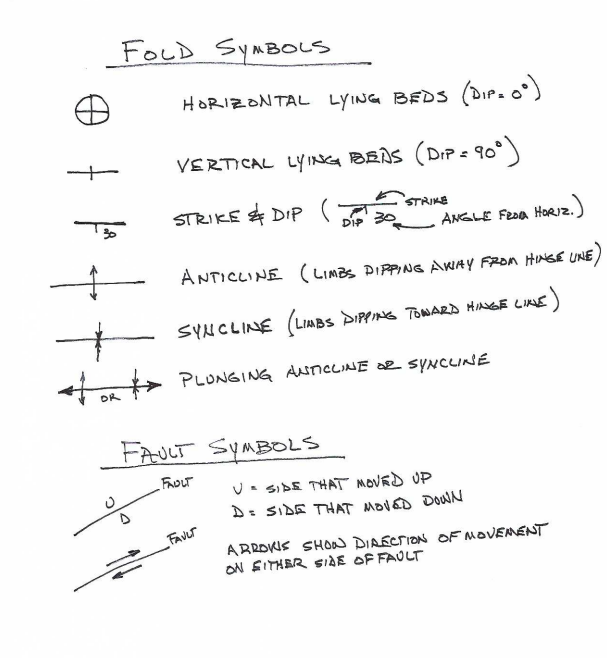 FOLD SYMBOLS
HORIZONTAL LYING BEDS (DIP = 0°)
VERTICAL LYING BEDS (DIP = 90°)
30
STRIKE & DIP ( STRIKE
DIP 30 ANGLE FROM HORIZ.)
ANTICLINE (LIMBS DIPPING AWAY FROM HINGE LINE)
SYNCLINE (LIMBS DIPPING TOWARD HINGE LINE)
OR
PLUNGING ANTICLINE OR SYNCLINE
FAULT SYMBOLS
U
D
FAULT
U = SIDE THAT MOVED UP
D = SIDE THAT MOVED DOWN
FAULT
ARROWS SHOW DIRECTION OF MOVEMENT
ON EITHER SIDE OF FAULT